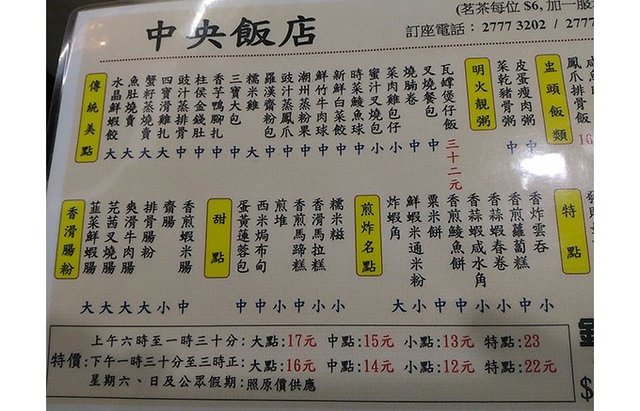 中央飯店
(茗茶每位 $6, 加一服
訂座電話：2777 3202 / 2777
傳統美點
水晶鮮蝦餃 大
魚肚燒賣 大
蟹籽蒸燒賣 大
四寶滑雞扎 大
豉汁蒸排骨 中
柱侯金錢肚 中
香芋鴨腳扎 中
三寶大包 中
糯米雞 大
羅漢齋粉包 中
豉汁蒸鳳爪 中
潮州蒸粉果 中
鮮竹牛肉球 中
新鮮白菜餃 中
時菜鯪魚球 中
蜜汁叉燒包 小
菜肉雞包仔 小
燒腩卷 中
叉燒餐包 中
瓦罉煲仔飯 三十二元
明火靚粥
菜乾豬骨粥 中
皮蛋瘦肉粥 中
盅頭飯類
鳳爪排骨飯 16
香滑腸粉
韮菜鮮蝦腸 大
芫茜叉燒腸 大
爽滑牛肉腸 大
排骨腸粉 大
齋腸 小
香煎蝦米腸 中
甜點
蛋黃蓮蓉包 中
西米焗布甸 中
煎堆 小
香煎馬蹄糕 中
香滑馬拉糕 小
糯米糍 小
煎炸名點
炸蝦角 大
鮮蝦米通米粉 小
粟米餅 中
香煎鯪魚餅 小
香蒜蝦咸水角 中
香蒜蝦春卷 中
香煎蘿蔔糕 中
香炸雲吞 小
特點
特價：
上午六時至一時三十分：大點：17元 中點：15元 小點：13元 特點：23
下午一時三十分至三時正：大點：16元 中點：14元 小點：12元 特點：22元
星期六、日及公眾假期：照原價供應